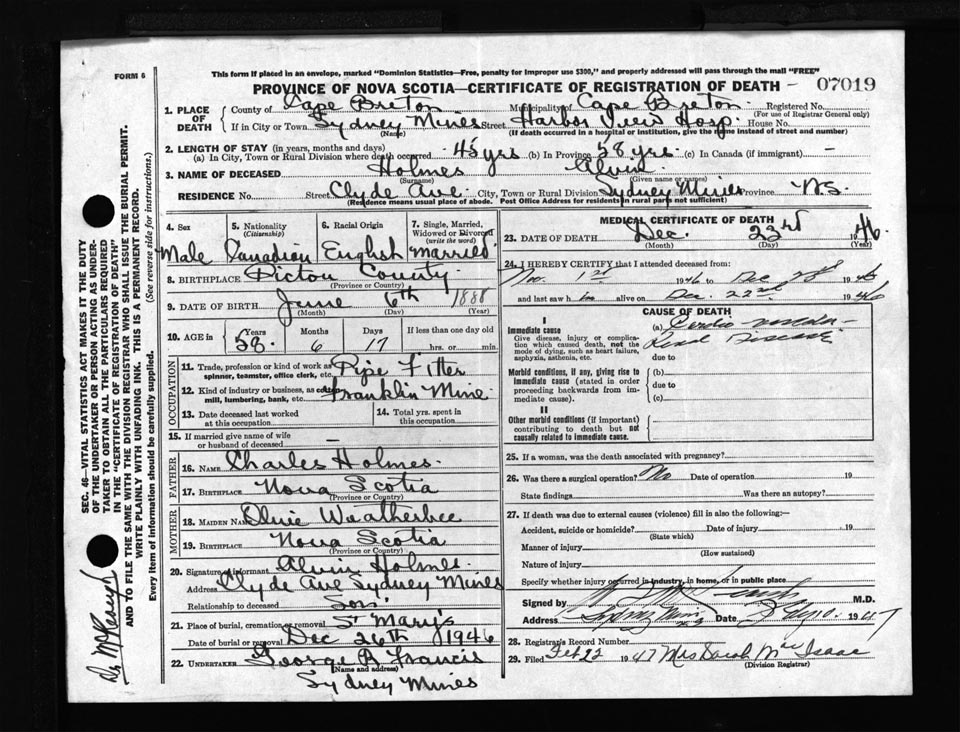 FORM 6
This form if placed in an envelope, marked "Dominion Statistics—Free, penalty for improper use $300," and properly addressed will pass through the mail "FREE"
PROVINCE OF NOVA SCOTIA—CERTIFICATE OF REGISTRATION OF DEATH - 07019
1. PLACE OF DEATH County of Cape Breton Municipality of Cape Breton Registered No.
(For use of Registrar General only)
If in City or Town Sydney Mines Street Harbor View Hosp. House No.
(Name) (If death occurred in a hospital or institution, give the name instead of street and number)
2. LENGTH OF STAY (in years, months and days)
(a) In City, Town or Rural Division where death occurred 45 yrs (b) In Province 58 yrs. (c) In Canada (if immigrant) —
3. NAME OF DECEASED Holmes Alvin
(Surname) (Given name or names)
RESIDENCE No. Street Clyde Ave. City, Town or Rural Division Sydney Mines Province NS.
(Residence means usual place of abode. Post Office Address for residents in rural parts not sufficient)
4. Sex 5. Nationality (Citizenship) 6. Racial Origin 7. Single, Married, Widowed or Divorced (write the word)
Male Canadian English Married
8. BIRTHPLACE Pictou County
(Province or County)
9. DATE OF BIRTH June 6th 1888
(Month) (Day) (Year)
10. AGE in Years Months Days If less than one day old
58 6 17 hrs. or min.
OCCUPATION
11. Trade, profession or kind of work as spinner, teamster, office clerk, etc. Pipe Fitter
12. Kind of industry or business, as cotton mill, lumbering, bank, etc. Franklin Mine
13. Date deceased last worked at this occupation
14. Total yrs. spent in this occupation
15. If married give name of wife or husband of deceased —
FATHER
16. NAME Charles Holmes.
17. BIRTHPLACE Nova Scotia
(Province or Country)
MOTHER
18. MAIDEN NAME Weatherbee
19. BIRTHPLACE Nova Scotia
(Province or Country)
20. Signature of informant Alvin Holmes
Address Clyde Ave Sydney Mines
Relationship to deceased Son
21. Place of burial, cremation or removal St Mary's
Date of burial or removal Dec 26th 1946
22. UNDERTAKER George R Francis
(Name and address)
Sydney Mines
MEDICAL CERTIFICATE OF DEATH
23. DATE OF DEATH Dec. 23rd 1946
(Month) (Day) (Year)
24. I HEREBY CERTIFY that I attended deceased from:
Nov. 1st 1946 to Dec 1946
and last saw him alive on Dec. 22nd 1946
CAUSE OF DEATH
I
Immediate cause
Give disease, injury or complication which caused death, not the mode of dying, such as heart failure, asphyxia, asthenia, etc.
(a) Cardio vascular
Renal Disease
due to
Morbid conditions, if any, giving rise to immediate cause (stated in order proceeding backwards from immediate cause)
(b)
due to
(c)
II
Other morbid conditions (if important) contributing to death but not causally related to immediate cause.
25. If a woman, was the death associated with pregnancy?
26. Was there a surgical operation? No Date of operation 19
State findings Was there an autopsy?
27. If death was due to external causes (violence) fill in also the following:—
Accident, suicide or homicide? Date of injury 19
(State which)
Manner of injury
(How sustained)
Nature of injury
Specify whether injury occurred in industry, in home, or in public place
Signed by M.D.
Address Date 1947
28. Registrar's Record Number
29. Filed Feb 22 1947 Mrs Sarah McIsaac
(Division Registrar)
SEC. 46—VITAL STATISTICS ACT MAKES IT THE DUTY
OF THE UNDERTAKER OR PERSON ACTING AS UNDER-
TAKER TO OBTAIN ALL THE PARTICULARS REQUIRED
IN THE "CERTIFICATE OF REGISTRATION OF DEATH"
AND TO FILE THE SAME WITH THE DIVISION REGISTRAR WHO SHALL ISSUE THE BURIAL PERMIT.
WRITE PLAINLY WITH UNFADING INK. THIS IS A PERMANENT RECORD.
Every item of information should be carefully supplied. (See reverse side for instructions.)